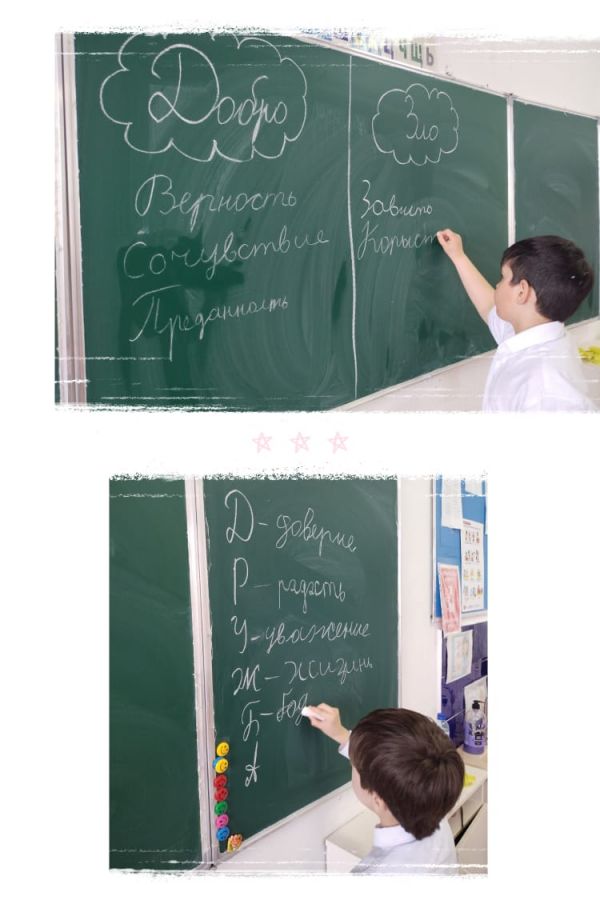 Добро
Верность
Сочувствие
Преданность
Зло
Зависть
Корыст
Д - доверие
Р - радость
У - уважение
Ж - жизнь
Б - бод
А